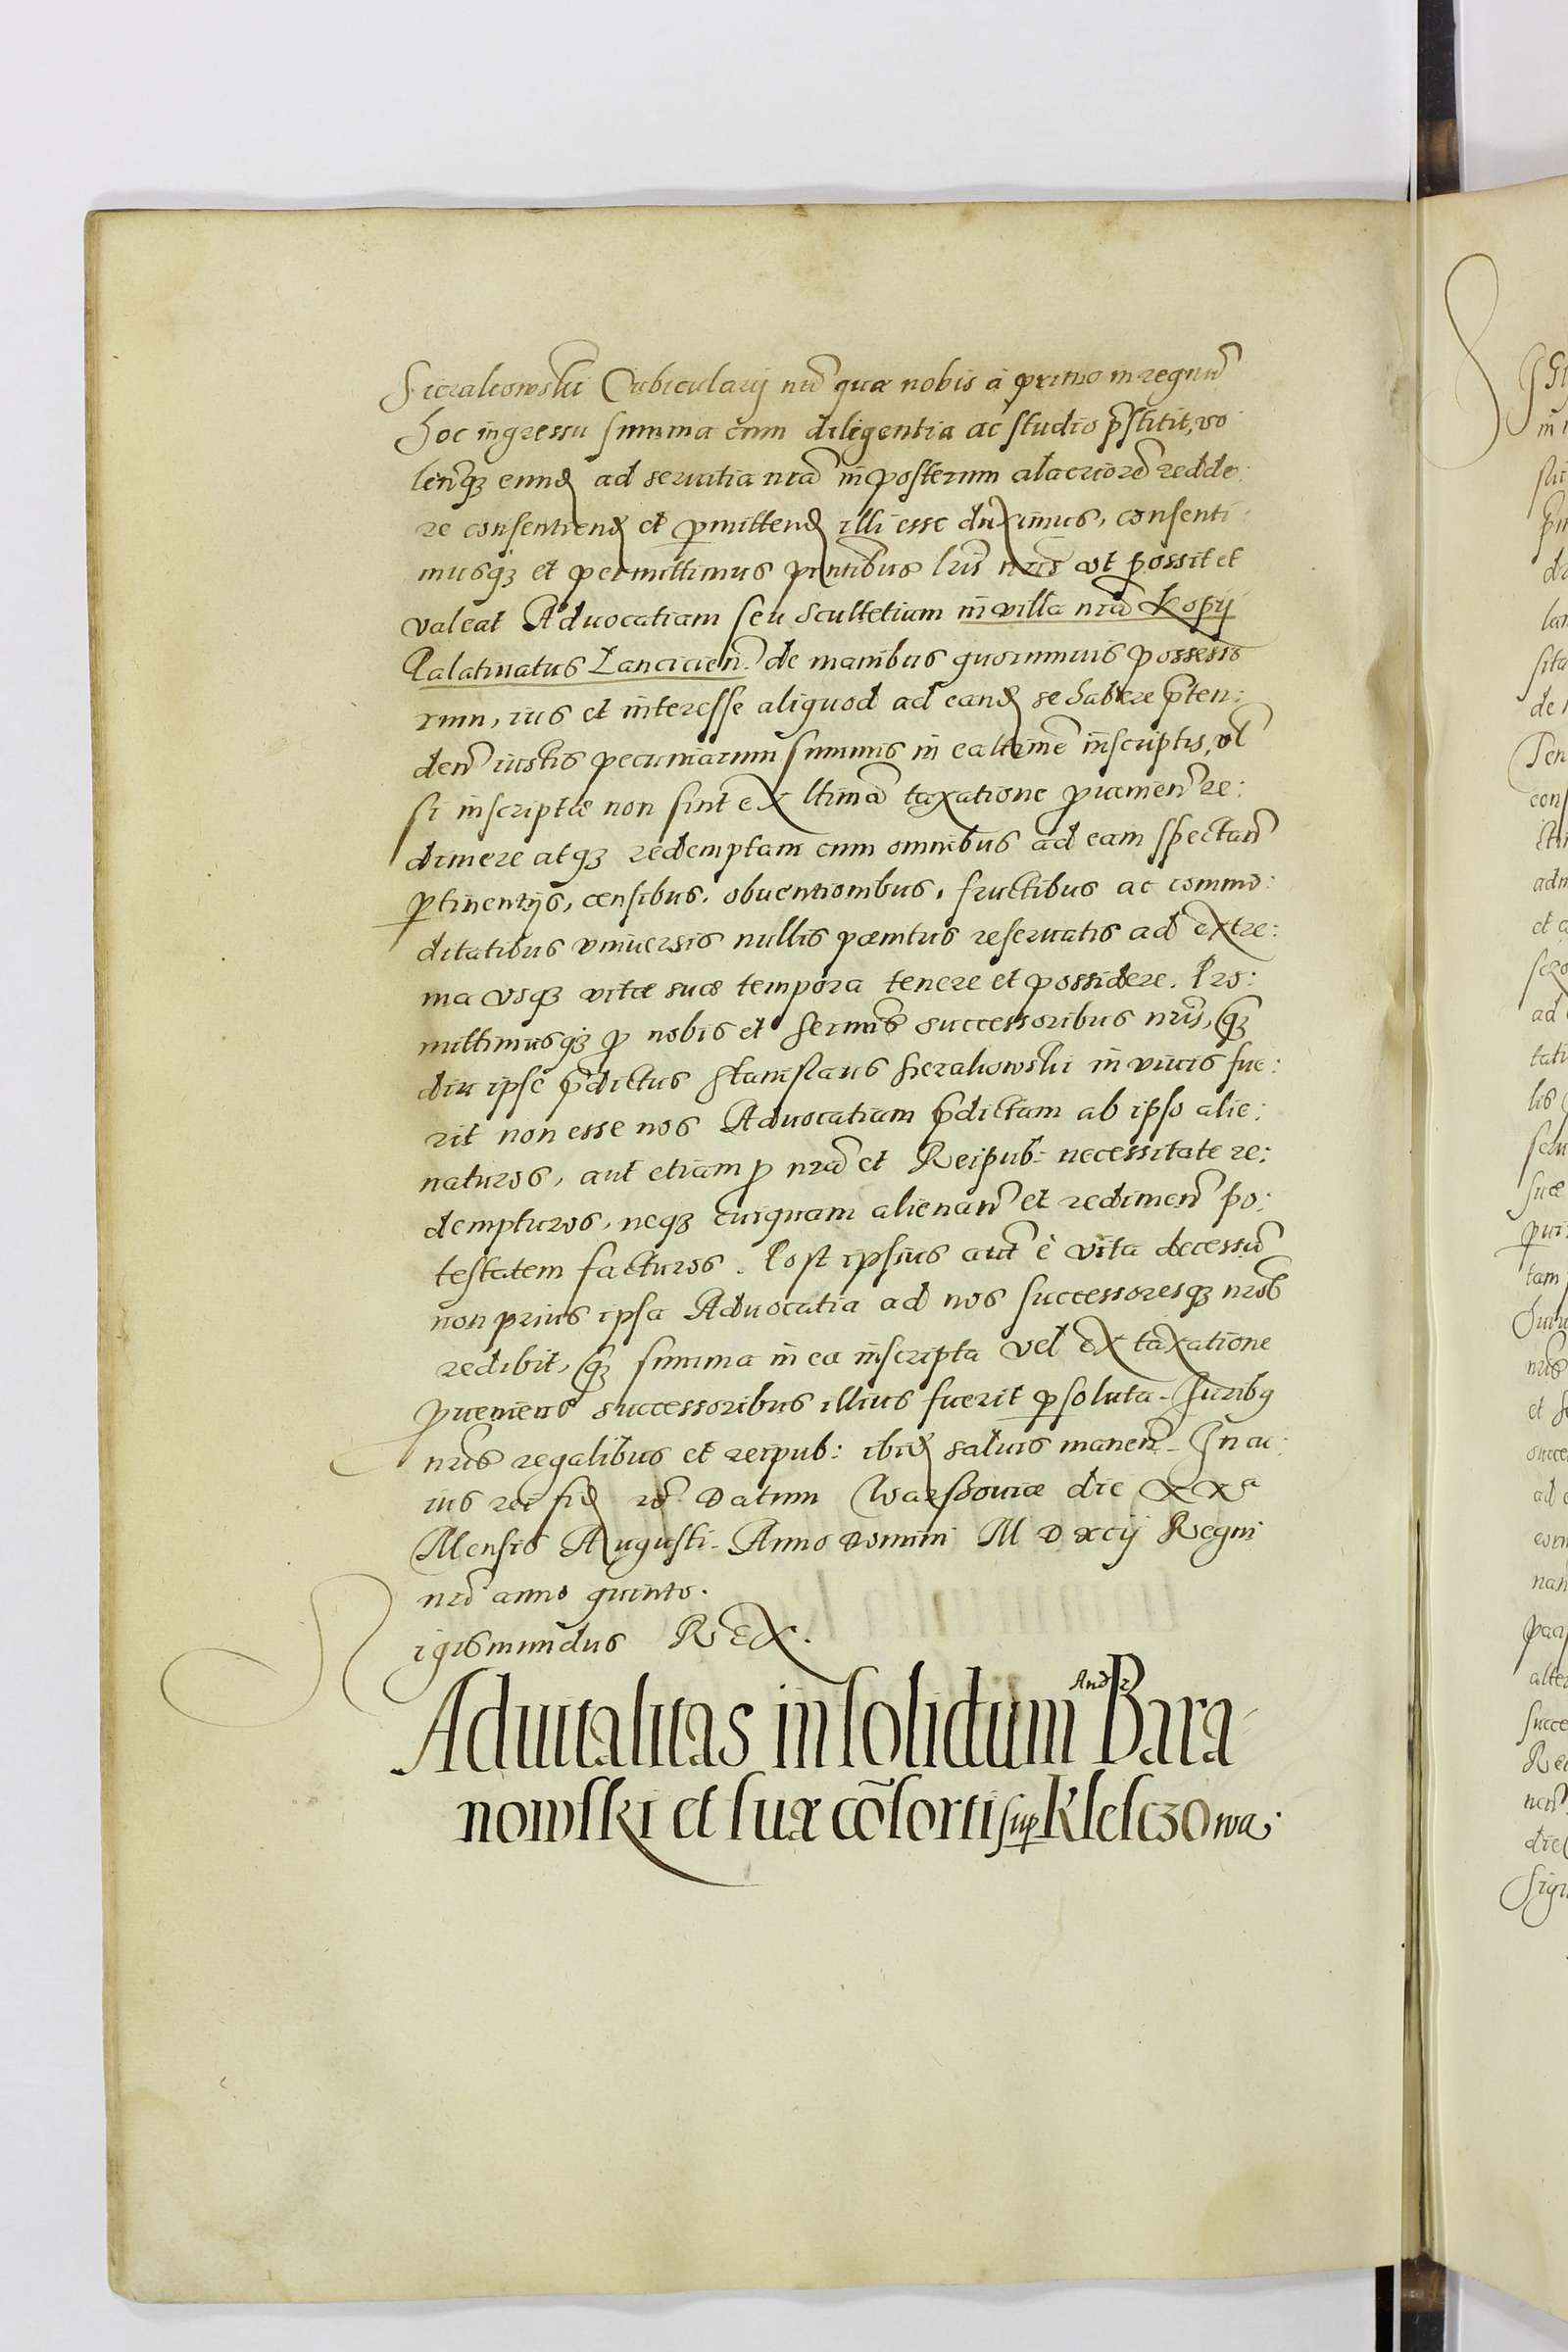 Sierakowski Cubicularij nrī quæ nobis à primo in regnū
hoc ingressu summa cum diligentia ac studio p̄stitit, vo
lentesq; eund ad seruitia nrā in posterum alacriorē redde:
re consentiend et permittend illi esse duximus, consenti:
musq; et permittimus pntibus lris nris vt possit et
valeat Aduocatiam seu Scultetiam in villa nrā Kopij
Palatinatus Lancicien̄. de manibus quorumuis possesso
rum, ius et interesse aliquod ad eand se habere p̄ten:
den̄ iustis pecuniarum summis in ea ltimē inscriptis, vl
si inscriptæ non sint ex ltimā taxatione prouenien̄ re:
dimere atq; redemptam cum omnibus ad eam spectan̄
ptinentijs, censibus, obuentionibus, fructibus ac commo:
ditatibus vniuersis nullis pœnitus reseruatis ad extre:
ma vsq; vitæ suæ tempora tenere et possidere. Pro:
mittimusq; p nobis et sermis successoribus nris, q̄;
diu ipse p̄dictus Stanislaus Sierakowski in viuis fue:
rit non esse nos Aduocatiam p̄dictam ab ipso alie:
naturos, aut etiam p nrā et Reipub: necessitate re:
dempturos, neq; cuiquam alienan̄ et redimen̄ po:
testatem facturos. Post ipsius aūt è vita decessū
non prius ipsa Aduocatia ad nos successoresq; nros
redibit, q̄; summa in ea inscripta vel ex taxatione
proueniens successoribus illius fuerit psoluta. Juribq
nris regalibus et reipub: ibid saluis manen̄. In cu:
ius rei fid rō. Datum Warssouiæ die XX a
Mensis Augusti. Anno Domini M D xcij Regni
nrī anno quinto.
Sigismundus REX.
Aduitalitas in solidum Andr Bara
nowski et suæ cōsorti sup Klesczowa.